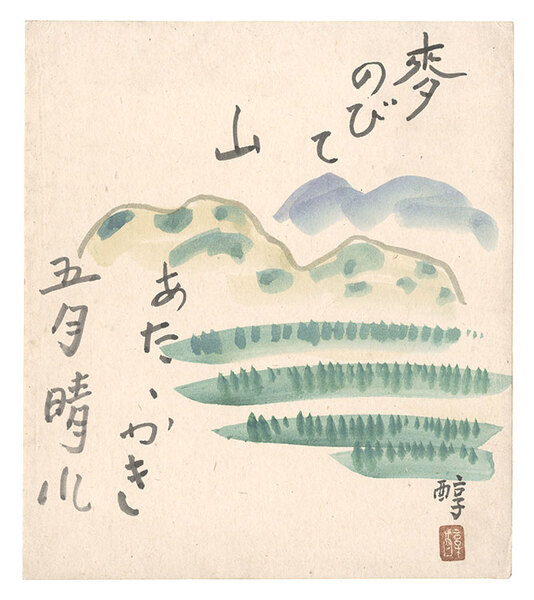 麥
のび
て
山
あたゝかき
五月晴れ
醇